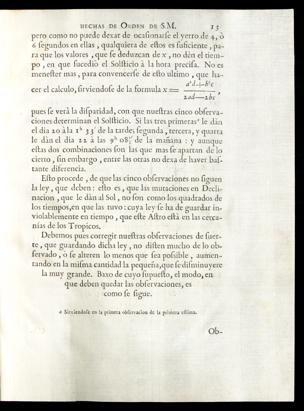 HECHAS DE ORDEN DE S.M. 15
pero como no puede dexar de ocasionarse el yerro de 4, ò
6 segundos en ellas, qualquiera de estos es suficiente, pa-
ra que los valores, que se deduzcan de x, no dèn el tiem-
po, en que sucediò el Solsticio à la hora precisa. No es
menester mas, para convencerse de esto ultimo, que ha-
cer el calculo, sirviendose de la formula x =
pues se verà la disparidad, con que nuestras cinco observa-
ciones determinan el Solsticio. Si las tres primeras a le dàn
el dia 20 à la 1h 33' de la tarde; segunda, tercera, y quarta
le dàn el dia 22 à las 9h 08' de la mañana : y aunque
estas dos combinaciones son las que mas se apartan de lo
cierto, sin embargo, entre las otras no dexa de haver bas-
tante diferencia.
Esto procede, de que las cinco observaciones no siguen
la ley, que deben: esto es, que las mutaciones en Decli-
nacion, que le dàn al Sol, no son como los quadrados de
los tiempos, en que las tuvo: cuya ley se ha de guardar in-
violablemente en tiempo, que este Astro està en las cerca-
nías de los Tropicos.
Debemos pues corregir nuestras observaciones de suer-
te, que guardando dicha ley, no disten mucho de lo ob-
servado, ò se alteren lo menos que sea posible, aumen-
tando en la misma cantidad la pequeña, que se disminuyere
la muy grande. Baxo de cuyo supuesto, el modo, en
que deben quedar las observaciones, es
como se sigue.
a Sirviendose en la primera observacion de la primera estima.
Ob-